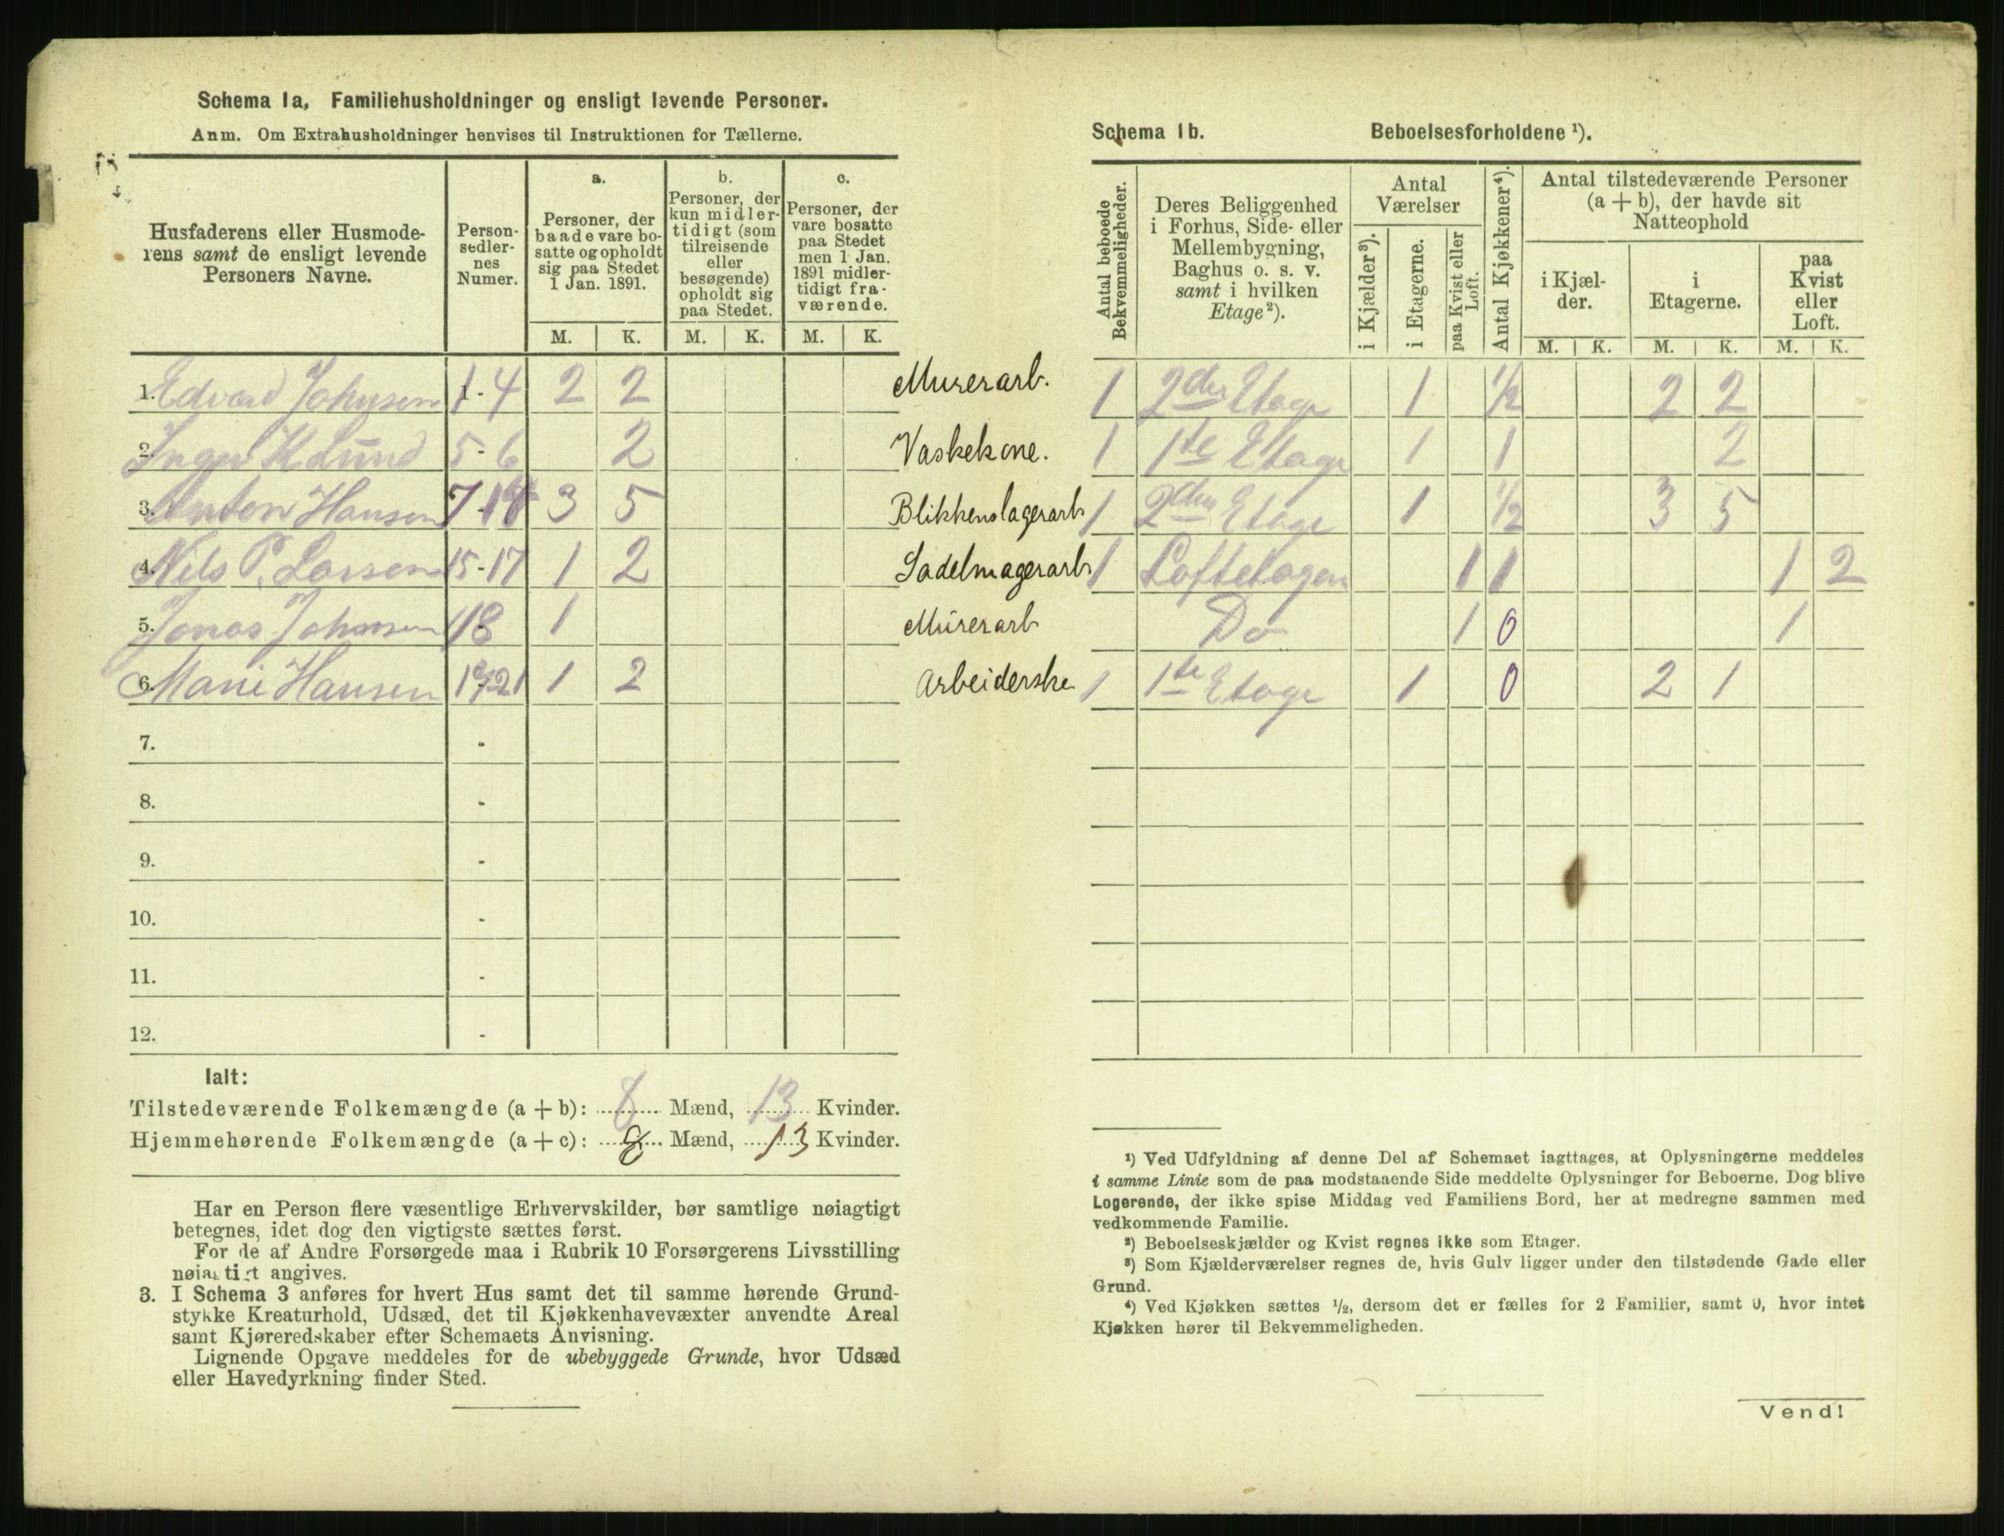 Schema 1a, Familiehusholdninger og ensligt levende Personer.
Anm. Om Extrahusholdninger henvises til Instruktionen for Tællerne.
Husfaderens eller Husmoderens samt de ensligt levende Personers Navne.
Person-sedler-nes Numer.
a. Personer, der baade vare bosatte og opholdt sig paa Stedet 1 Jan. 1891.
b. Personer, der kun midlertidigt (som tilreisende eller besøgende) opholdt sig paa Stedet.
c. Personer, der vare bosatte paa Stedet men 1 Jan. 1891 midlertidigt fraværende.
M. K. M. K. M. K.
1. Edvard Johnsen 1-4 2 2 Murerarb.
2. Inger K Lund 5-6 2 Vaskekone.
3. Anton Hansen 7-14 3 5 Blikkenslagerarb
4. Nils P. Larsen 15-17 1 2 Sadelmagerarb
5. Jonas Johnsen 18 1 Murerarb
6. Marie Hansen 19-21 1 2 Arbeiderske
7. -
8. -
9. -
10. -
11. -
12. -
Ialt:
Tilstedeværende Folkemængde (a + b): 8 Mænd, 13 Kvinder.
Hjemmehørende Folkemængde (a + c): 8 Mænd, 13 Kvinder.
Har en Person flere væsentlige Erhvervskilder, bør samtlige nøiagtigt
betegnes, idet dog den vigtigste sættes først.
For de af Andre Forsørgede maa i Rubrik 10 Forsørgerens Livsstilling
nøiagtigt angives.
3. I Schema 3 anføres for hvert Hus samt det til samme hørende Grund-
stykke Kreaturhold, Udsæd, det til Kjøkkenhavevæxter anvendte Areal
samt Kjøreredskaber efter Schemaets Anvisning.
Lignende Opgave meddeles for de ubebyggede Grunde, hvor Udsæd
eller Havedyrkning finder Sted.
Schema 1b. Beboelsesforholdene ¹).
Antal beboede Bekvemmeligheder.
Deres Beliggenhed i Forhus, Side- eller Mellembygning, Baghus o. s. v. samt i hvilken Etage ²).
Antal Værelser
i Kjælder ³).
i Etagerne.
paa Kvist eller Loft.
Antal Kjøkkener ⁴).
Antal tilstedeværende Personer (a + b), der havde sit Natteophold
i Kjælder.
i Etagerne.
paa Kvist eller Loft.
M. K. M. K. M. K.
1 2den Etage 1 1/2 2 2
1 1te Etage 1 1 2
1 2den Etage 1 1/2 3 5
1 Loftetagen 1 1 1 2
Do 1 0 1
1 1te Etage 1 0 2 1
¹) Ved Udfyldning af denne Del af Schemaet iagttages, at Oplysningerne meddeles
i samme Linie som de paa modstaaende Side meddelte Oplysninger for Beboerne. Dog blive
Logerende, der ikke spise Middag ved Familiens Bord, her at medregne sammen med
vedkommende Familie.
²) Beboelseskjælder og Kvist regnes ikke som Etager.
³) Som Kjælderværelser regnes de, hvis Gulv ligger under den tilstødende Gade eller
Grund.
⁴) Ved Kjøkken sættes ½, dersom det er fælles for 2 Familier, samt 0, hvor intet
Kjøkken hører til Bekvemmeligheden.
Vend!